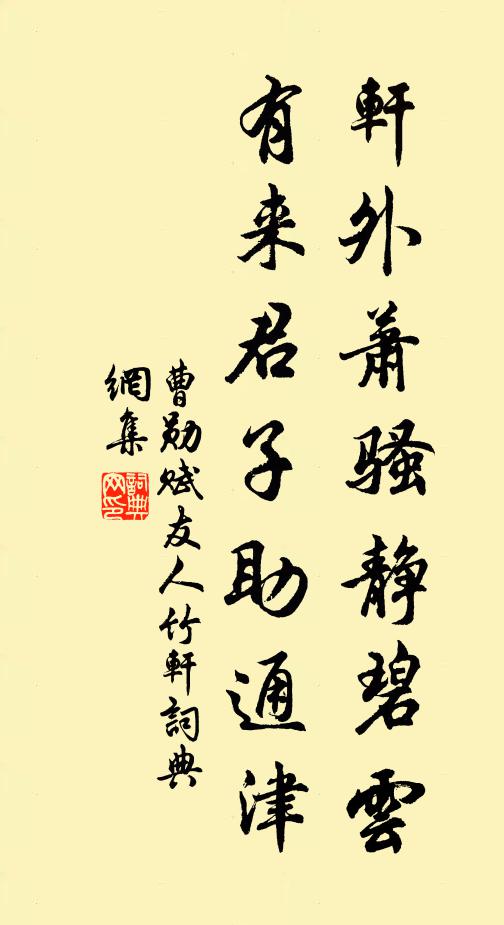 軒外蕭騷静碧雲
有来君子助通津
曹勋赋友人竹軒詞典
網集
詞典网印